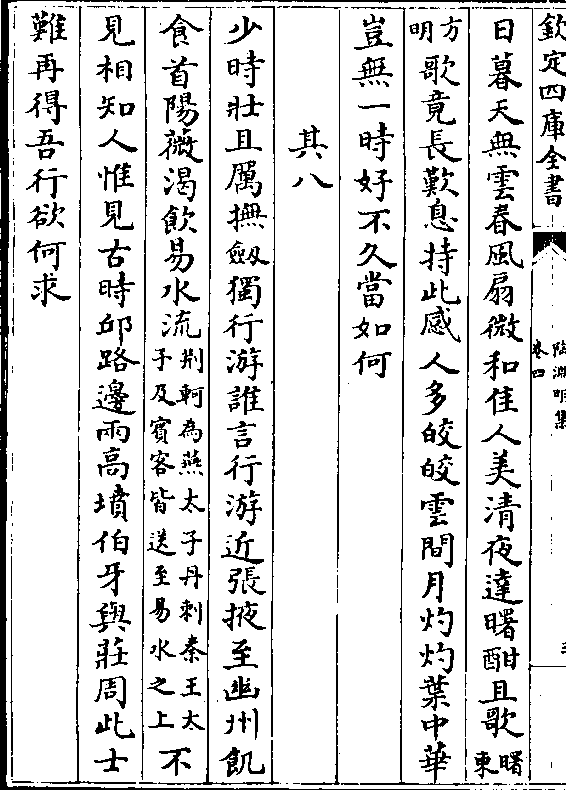 欽定四庫全書
陶淵明集
卷四
日暮天無雲春風扇微和佳人美清夜達曙酣且歌曙東
方明歌竟長歎息持此感人多皎皎雲間月灼灼葉中華
豈無一時好不久當如何
其八
少時壯且厲撫劔獨行游誰言行游近張掖至幽州飢
食首陽薇渴飲易水流荆軻為燕太子丹刺秦王太子及賓客皆送至易水之上不
見相知人惟見古時邱路邊兩高墳伯牙與莊周此士
難再得吾行欲何求